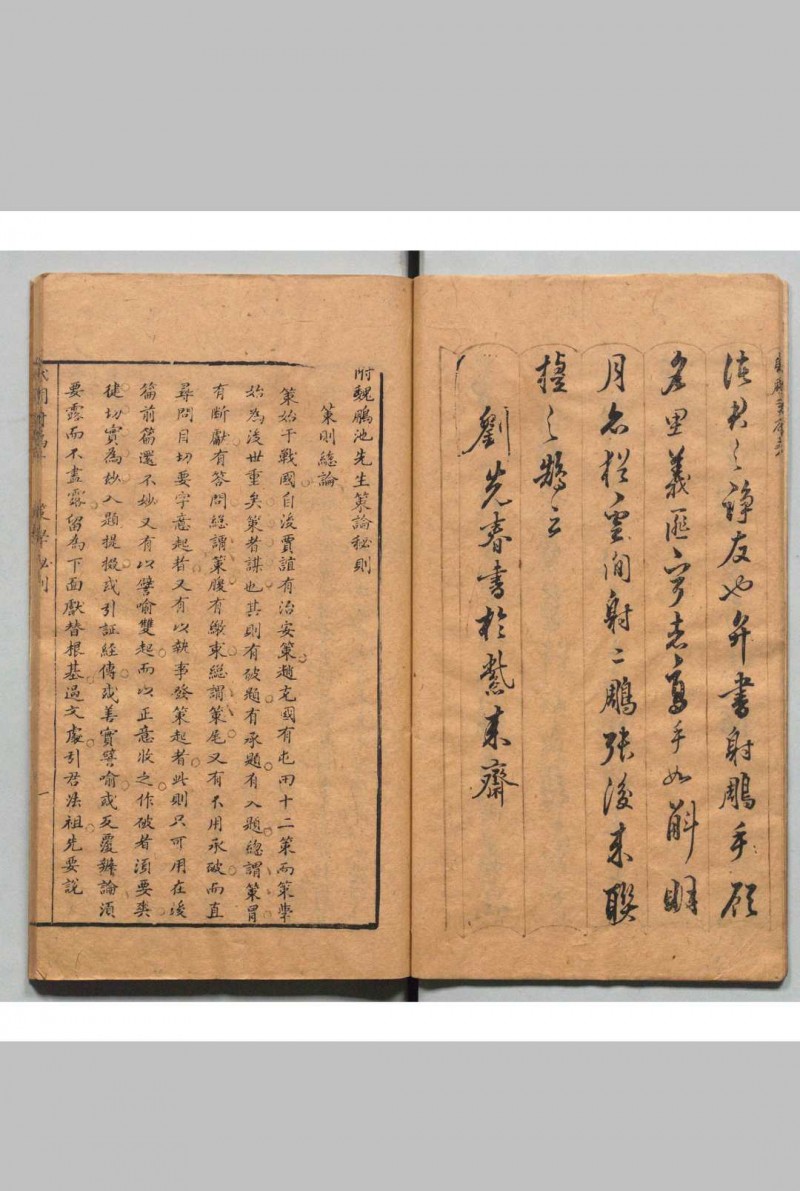 法君之諍友也弁書射鵰手顧
名思義匪穿志高手如斛明
月不從雲間射二鵰張後來聯
擅之鵠云
劉先春書於紫来齋
附魏鵬池先生策論秘則
策則總論
策始于戰國自後賈誼有治安策趙充國有屯田十二策而策學
始為後世重矣策者謀也其則有破題有承題有入題總謂策冒
有断獻有答問總謂策腹有繳束總謂策尾又有不用承破而直
尋問目切要字意起者又有以執事發策起者此則只可用在後
篇前篇還不妙又有以譬喻雙起而以正意收之作破者須要奕
徒切實為妙入題提掇或引証經傳或善實譬喻或反覆辨論須
要露而不盡露留為下面獻替根基過文處引君法祖先要說